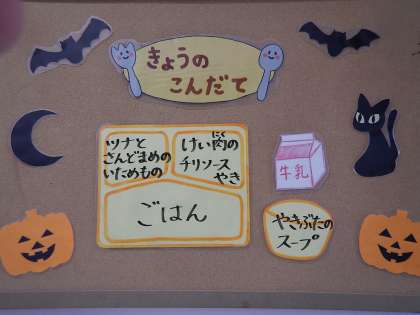 きょうの
こんだて
ツナと
さんどまめの
いためもの
けい肉の
にく
チリソース
やき
ごはん
牛乳
やきぶたの
スープ